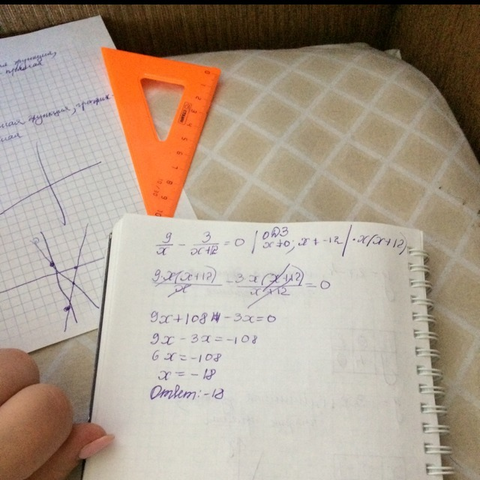 9/x - 3/x+12 = 0 | ОДЗ x≠0, x≠-12 | · x(x+12)
9x(x+12)/x - 3x(x+12)/x+12 = 0
9x+108 - 3x=0
9x - 3x = -108
6x = -108
x = -18
Ответ: -18